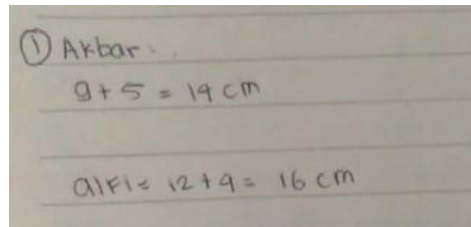 ① Akbar
9 + 5 = 14 cm
alFi = 12 + 4 = 16 cm